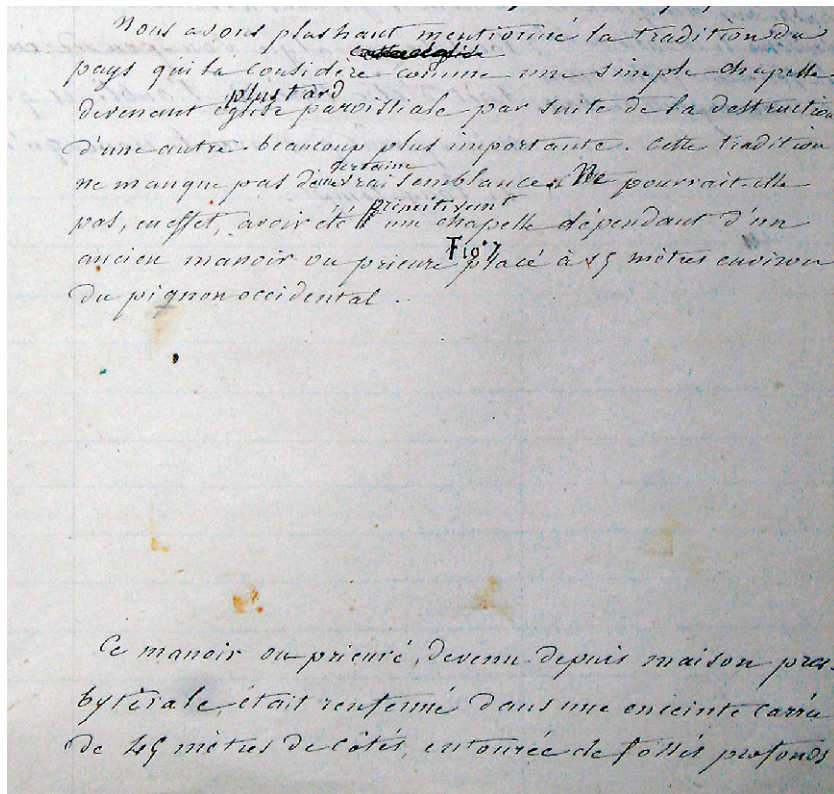 Nous avons plus haut mentionné la tradition du
pays qui la considère comme une simple chapelle
plus tard
devenant église paroissiale par suite de la destruction
d'une autre beaucoup plus importante. Cette tradition
certaine
ne manque pas d'une vraisemblance. Ne pourrait elle
primitivent
pas, en effet, avoir été une chapelle dépendant d'un
Fig. 7
ancien manoir ou prieuré placé à 15 mètres environ
du pignon occidental.
Ce manoir ou prieuré, devenu depuis maison pres-
bytérale, était renfermé dans une enceinte carrée
de 45 mètres de côtés, entourée de fossés profonds